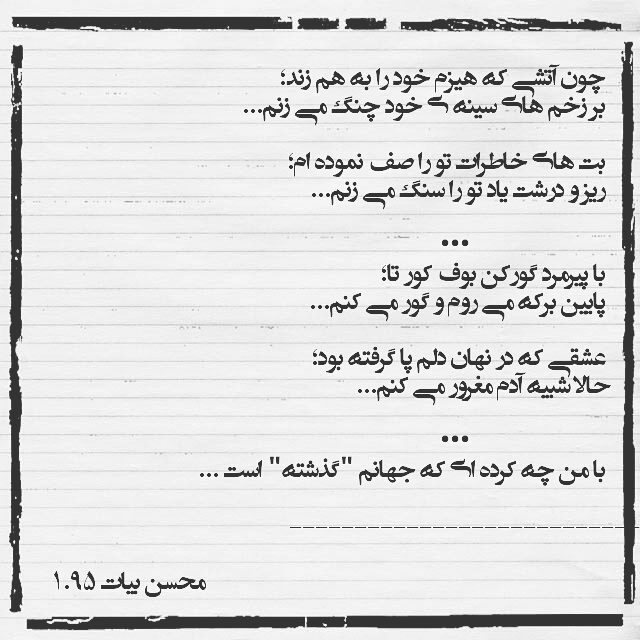 چون آتشی که هیزم خود را به هم زند؛
بر زخم های سینه ی خود چنگ می زنم...
بت های خاطرات تو را صف نموده ام؛
ریز و درشت یاد تو را سنگ می زنم...
...
با پیرمرد گورکن بوف کور تا؛
پایین برکه می روم و گور می کنم...
عشقی که در نهان دلم پا گرفته بود؛
حالا شبیه آدم مغرور می کنم...
...
با من چه کرده ای که جهانم "گذشته" است ...
محسن بیات ۱.۹۵